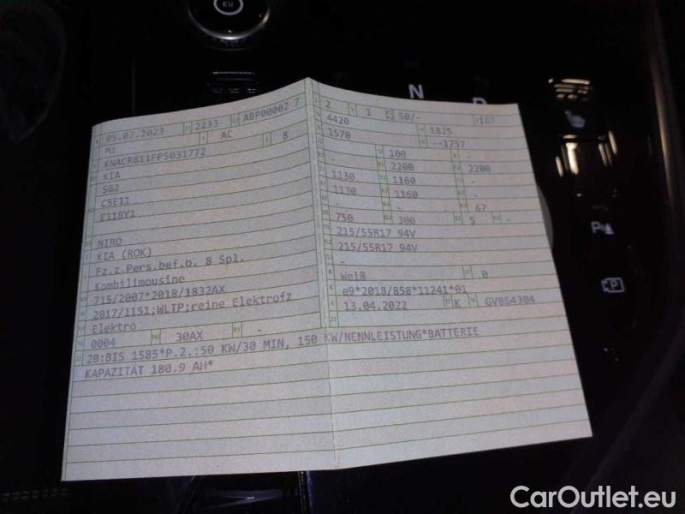 N
05.07.2023 2233 ABP00002 7
M1 AC 8
KNACR811FP5031772
KIA
SG2
C5E11
E11BY1
NIRO
KIA (ROK)
Fz.z.Pers.bef.b. 8 Spl.
Kombilimousine
715/2007*2018/1832AX
2017/1151;WLTP;reine Elektrofz
Elektro
0004 30AX -
20:BIS 1585*P.2.:50 KW/30 MIN, 150 KW/NENNLEISTUNG*BATTERIE
KAPAZITÄT 180.9 AH*
2 1 50/-
4420 1825
1570 --1757
- 100 -
2200 2200
1130 1160 -
1130 1160 -
- - 67
750 300 5 -
215/55R17 94V
215/55R17 94V
-
Weiß 0
e9*2018/858*11241*01
13.04.2022 K GV864304
P
CarOutlet.eu